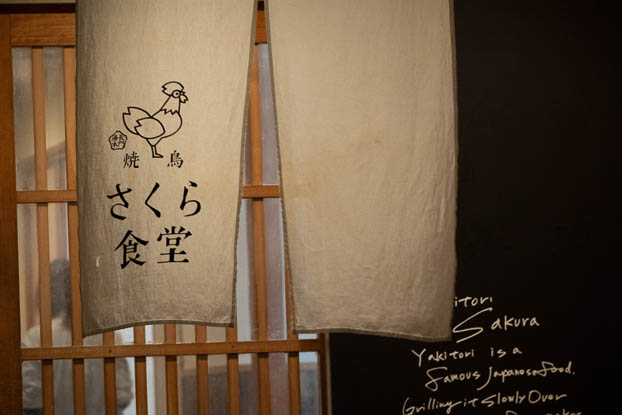 焼鳥
さくら
食堂
Sakura
Yakitori is a
famous Japanese food.
Grilling it slowly over